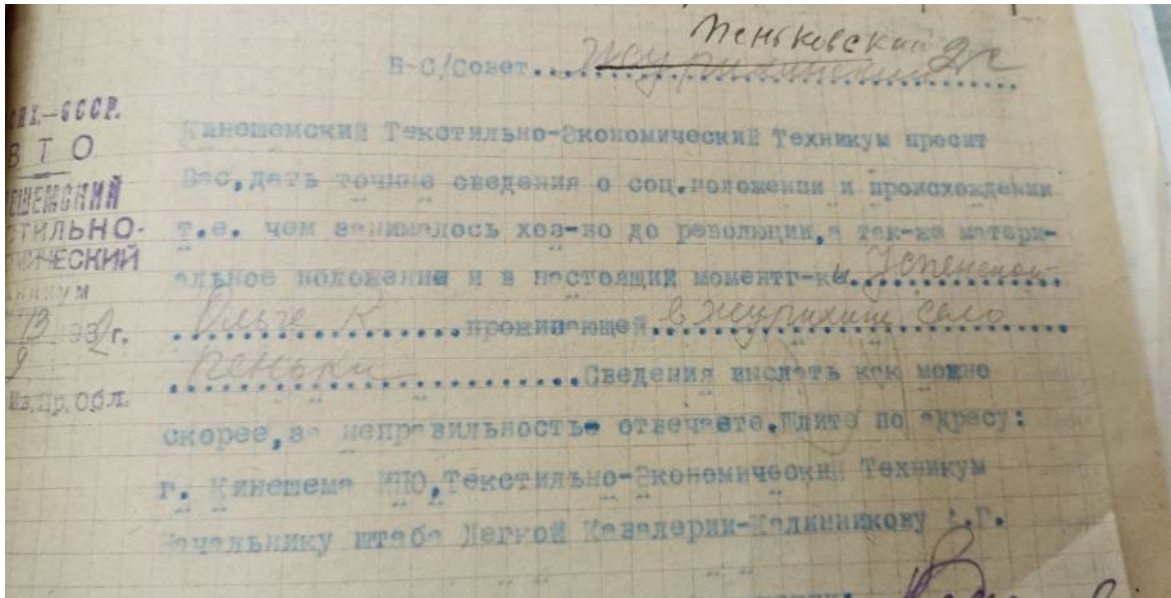 Пеньковский
В-С/Совет..........
НХ.-СССР.
ВТО
ЕШЕМСКИЙ
СТИЛЬНО-
МИЧЕСКИЙ
никум
13 932г.
9
Ив.пр.обл.
Кинешемский Текстильно-Экономический Техникум просит
Вас,дать точные сведения о соц.положении и происхождении
т.е. чем занималось хоз-во до революции,а так-же матери-
альное положение и в настоящий моментг-кы Успенской
Ольге К..........проживающей в Журихине село
Пеньки..........Сведения выслать как можно
скорее,за неправильностьь отвечаете.Шлите по адресу:
г. Кинешема ИПО,Текстильно-Экономический Техникум
Начальнику штаба Легкой Кавалерии-Калинникову